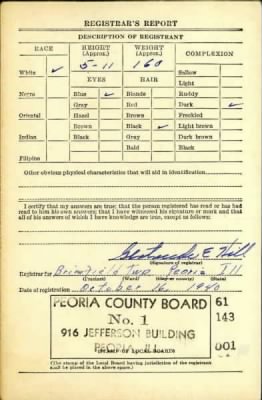 REGISTRAR'S REPORT
DESCRIPTION OF REGISTRANT
RACE HEIGHT (Approx.) WEIGHT (Approx.) COMPLEXION
5-11 160
White ✓ Sallow
EYES HAIR Light
Negro Blue ✓ Blonde Ruddy
Gray Red Dark ✓
Oriental Hazel Brown Freckled
Brown Black ✓ Light brown
Indian Black Gray Dark brown
Bald Black
Filipino
Other obvious physical characteristics that will aid in identification
I certify that my answers are true; that the person registered has read or has had read to him his own answers; that I have witnessed his signature or mark and that all of his answers of which I have knowledge are true, except as follows:
Gertrude E. Hill
(Signature of registrar)
Registrar for Brimfield Twp. Peoria Ill
Date of registration October 16, 1940
PEORIA COUNTY BOARD 61
No. 1 143
916 JEFFERSON BUILDING
PEORIA, ILL. 001
(STAMP OF LOCAL BOARD)
(The stamp of the Local Board having jurisdiction of the registrant shall be placed in the above space.)